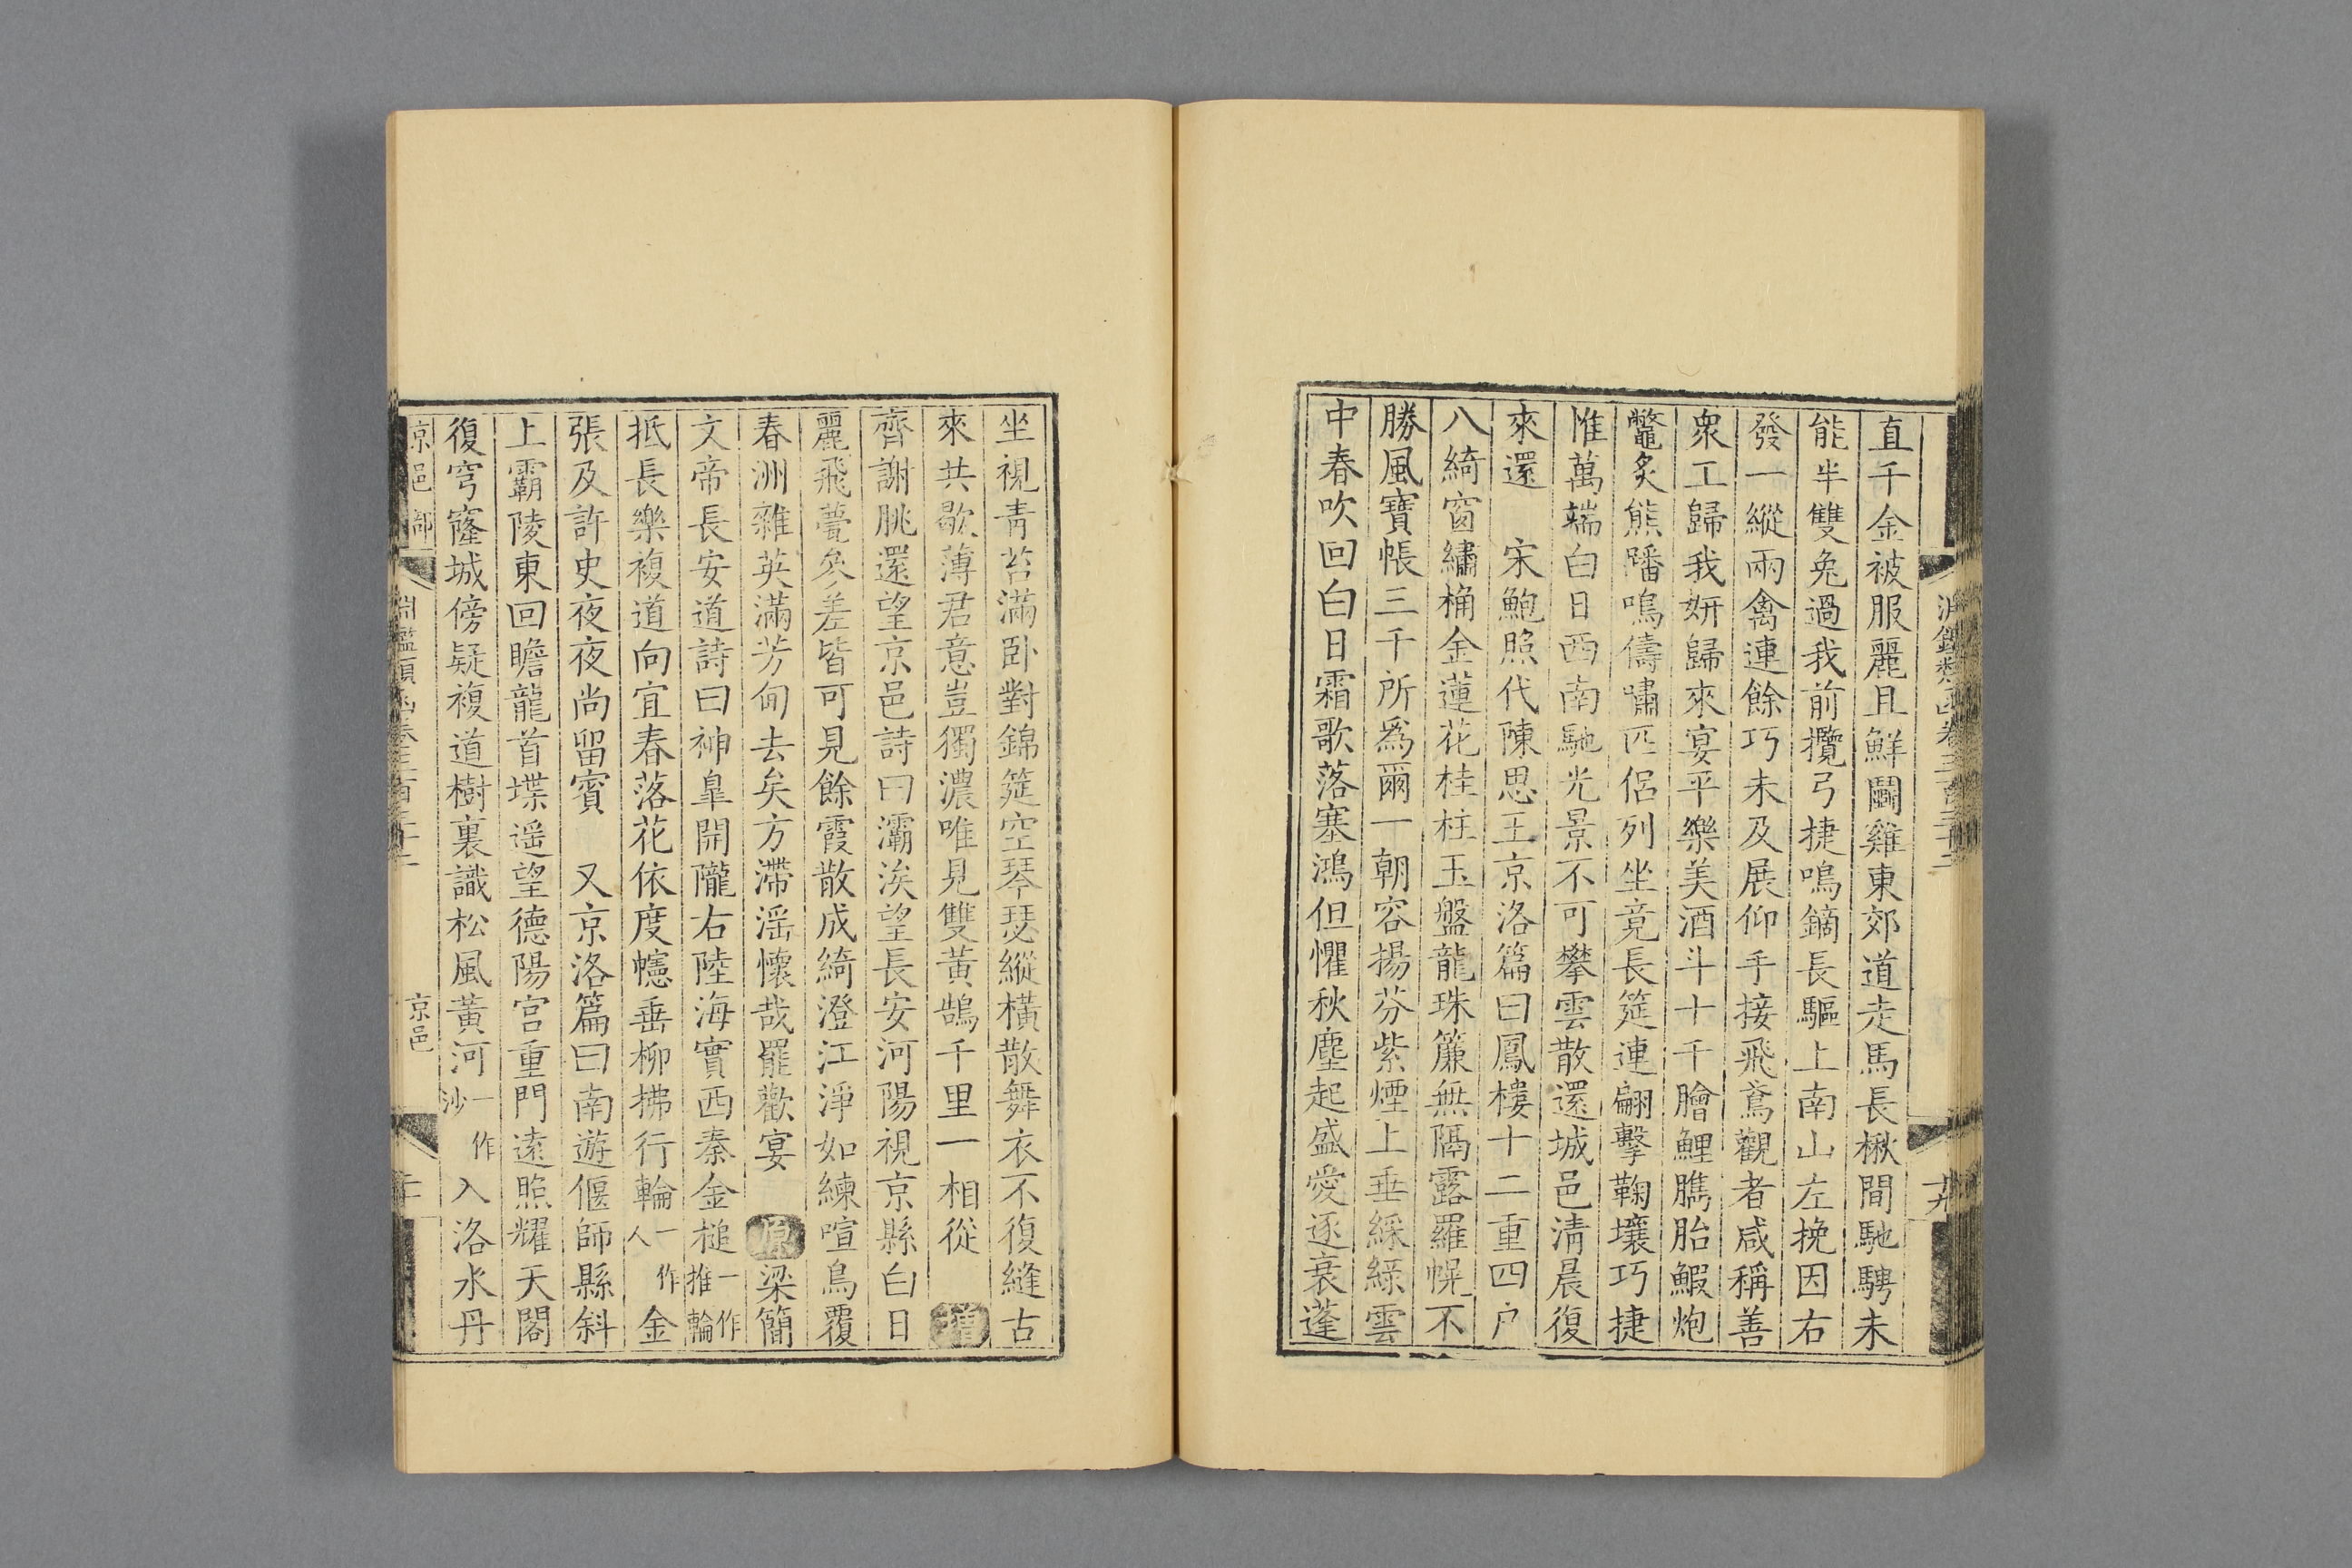 直千金被服麗且鮮鬬雞東郊道走馬長楸間馳騁未
能半雙兔過我前攬弓捷鳴鏑長驅上南山左挽因右
發一縱兩禽連餘巧未及展仰手接飛鳶觀者咸稱善
衆工歸我妍歸來宴平樂美酒斗十千膾鯉臇胎鰕炮
鼈炙熊蹯鳴儔嘯匹侣列坐竟長筵連翩擊鞠壤巧捷
惟萬端白日西南馳光景不可攀雲散還城邑清晨復
來還　宋鮑照代陳思王京洛篇曰鳳樓十二重四户
八綺窗繡桷金蓮花桂柱玉盤龍珠簾無隔露羅幌不
勝風寶帳三千所爲爾一朝容揚芬紫煙上垂綵綠雲
中春吹回白日霜歌落塞鴻但懼秋塵起盛愛逐衰蓬
坐視青苔滿卧對錦筵空琴瑟縱橫散舞衣不復縫古
來共歇薄君意豈獨濃唯見雙黃鵠千里一相從　增
齊謝朓還望京邑詩曰灞涘望長安河陽視京縣白日
麗飛甍參差皆可見餘霞散成綺澄江淨如練喧鳥覆
春洲雜英滿芳甸去矣方滯滛懷哉罷歡宴　原梁簡
文帝長安道詩曰神皐開隴右陸海實西秦金槌一作推輪
抵長樂複道向宜春落花依度幰垂柳拂行輪一作人金
張及許史夜夜尚留賓　又京洛篇曰南遊偃師縣斜
上霸陵東回瞻龍首堞遥望德陽宮重門遠照耀天閣
復穹窿城傍疑複道樹裏識松風黃河一作沙入洛水丹
京邑部
淵鑑類函卷三百三十三
京邑